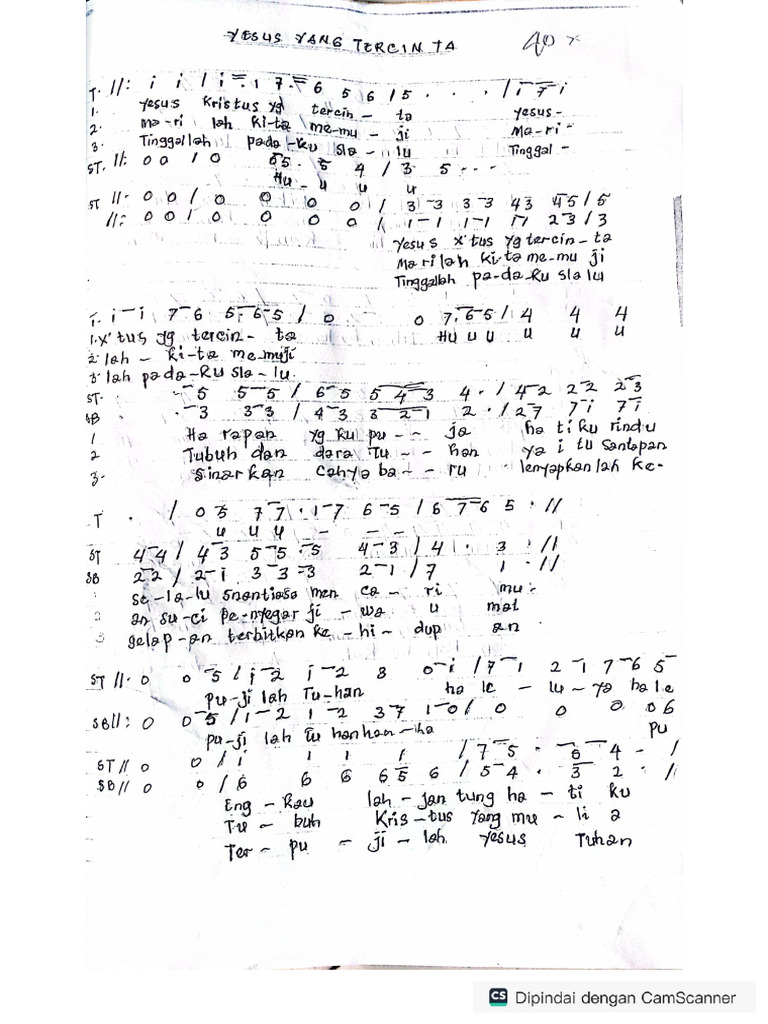 YESUS YANG TERCINTA 40 x
T. //: i i / i . 1 7 . 6 5 6 / 5 . . . / i 7 i
1. Yesus Kristus yg tercin - ta Yesus -
2. Ma - ri lah Ki - ta me - mu - ji Ma - ri -
3. Tinggallah pada - Ku sla - lu Tinggal -
ST. //: 0 0 / 0 65 . 5 4 / 3 5 . . .
Hu - u u u
ST //: 0 0 / 0 0 0 0 / 3 3 3 3 43 45 / 5
//: 0 0 / 0 0 0 0 / 1 1 1 1 17 23 / 3
Yesus X'tus yg tercin - ta
Marilah kita me - mu ji
Tinggallah pa - da - Ku sla lu
T. i - i 7 - 6 5 - 6 - 5 / 0 0 7 . 65 / 4 4 4
1. X'tus yg tercin - ta Hu u u u u u
2. lah - Ki - ta memuji
3. lah pada - Ku sla - lu.
ST. - 5 5 - 5 / 6 - 5 5 4 - 3 4 . / 4 - 2 2 2 2 - 3
SB . - 3 3 - 3 / 4 - 3 3 - 2 - 1 2 . / 27 7 i 7 i
1 Ha rapan yg ku pu - - ja ha ti ku rindu
2 Tubuh dan dara Tu - - han ya i tu Santapan
3. Sinarkan Cahya ba - - ru - lenyapkanlah ke -
T . / 0 5 7 7 . 1 - 7 6 - 5 / 6 7 - 6 5 . //
u u u - - -
ST 4 - 4 / 4 - 3 5 - 5 . 5 4 - 3 / 4 . 3 . //
SB 2 - 2 / 2 - 1 3 - 3 - 3 2 - 1 / 7 1 . //
se - la - lu Snantiasa men ca - ri mu -
2 an su - ci pe - nyegar ji - wa u mat
3 gelap - an terbitkan ke - hi - dup an
ST //: 0 0 - 5 / i - 2 i - 2 3 0 - i / 7 - 1 2 - 1 7 - 6 5
Pu - ji lah Tu - han ha le - lu - ya ha le
SB //: 0 0 - 5 / 1 - 2 1 - 2 37 1 - 0 / 0 0 0 0 6
pu - ji lah tu hanhan - ha pu
ST // 0 0 / i 1 1 1 / 7 - 5 . - 6 - 4 - /
SB // 0 0 / 6 6 6 65 6 / 5 - 4 . 3 2 . //
Eng - Kau lah - jan tung ha - ti ku
Tu - buh Kris - tus Yang mu - li a
Ter - pu - ji - lah Yesus Tuhan
CS Dipindai dengan CamScanner